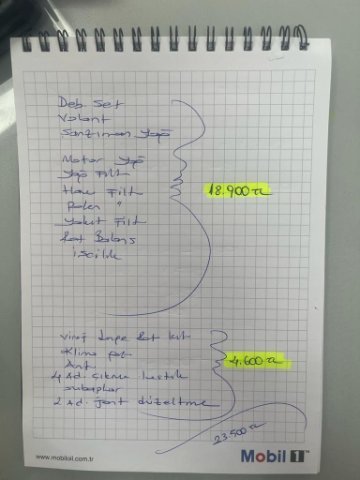 Deb Set
Volant
Sanziman yağı
Motor yağ
yağ Filt
Hava Filt
Polen "
yakıt Filt
Rot Balans
işcilik
18.900 TL
viraj Lape Rot kit
Klima gaz
Ant
4 Ad. çıkma lastik
subaplar
2 Ad. jant düzeltme
4.600 TL
23.500 TL
www.mobiloil.com.tr
Mobil 1